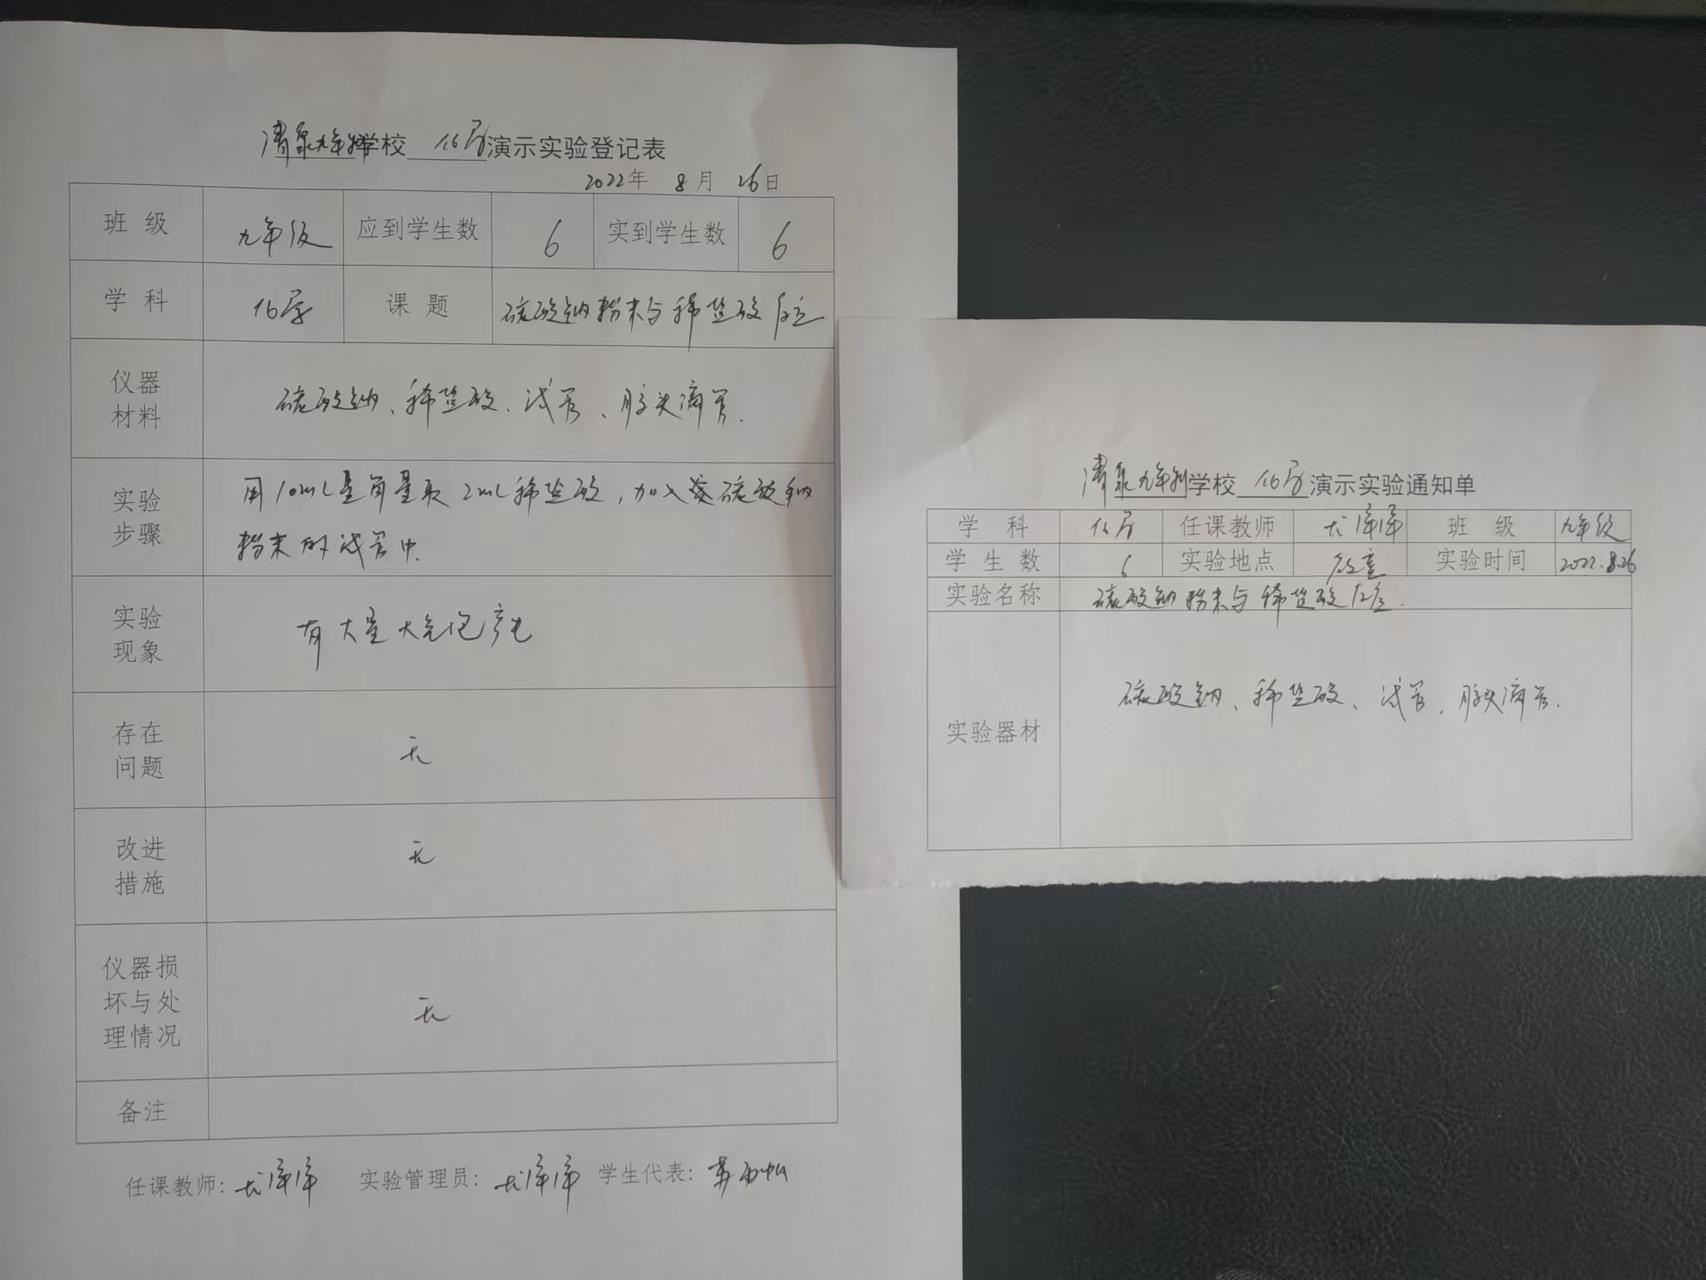 清泉九年制学校 化学 演示实验登记表
2022年 8月 26日
班级 九年级 应到学生数 6 实到学生数 6
学科 化学 课题 碳酸钠粉末与稀盐酸反应
仪器
材料
碳酸钠、稀盐酸、试管、胶头滴管.
实验
步骤
用10mL量筒量取2mL稀盐酸,加入 碳酸钠
粉末的试管中.
实验
现象
有大量大气泡产生
存在
问题
无
改进
措施
无
仪器损
坏与处
理情况
无
备注
任课教师: 实验管理员: 学生代表:
清泉九年制学校 化学 演示实验通知单
学科 化学 任课教师 班级 九年级
学生数 6 实验地点 实验时间 2022.8.26
实验名称 碳酸钠粉末与稀盐酸反应.
实验器材 碳酸钠、稀盐酸、试管、胶头滴管.